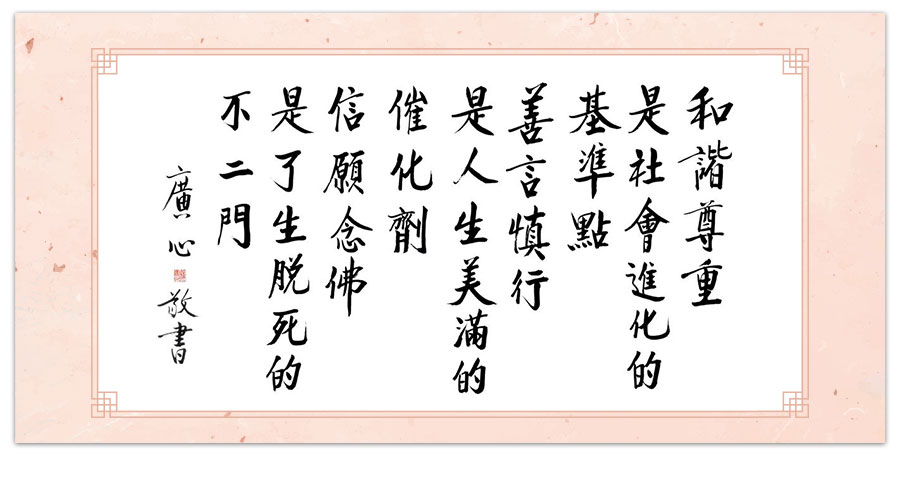 和諧尊重
是社會進化的
基準點
善言慎行
是人生美滿的
催化劑
信願念佛
是了生脫死的
不二門
廣心
敬書